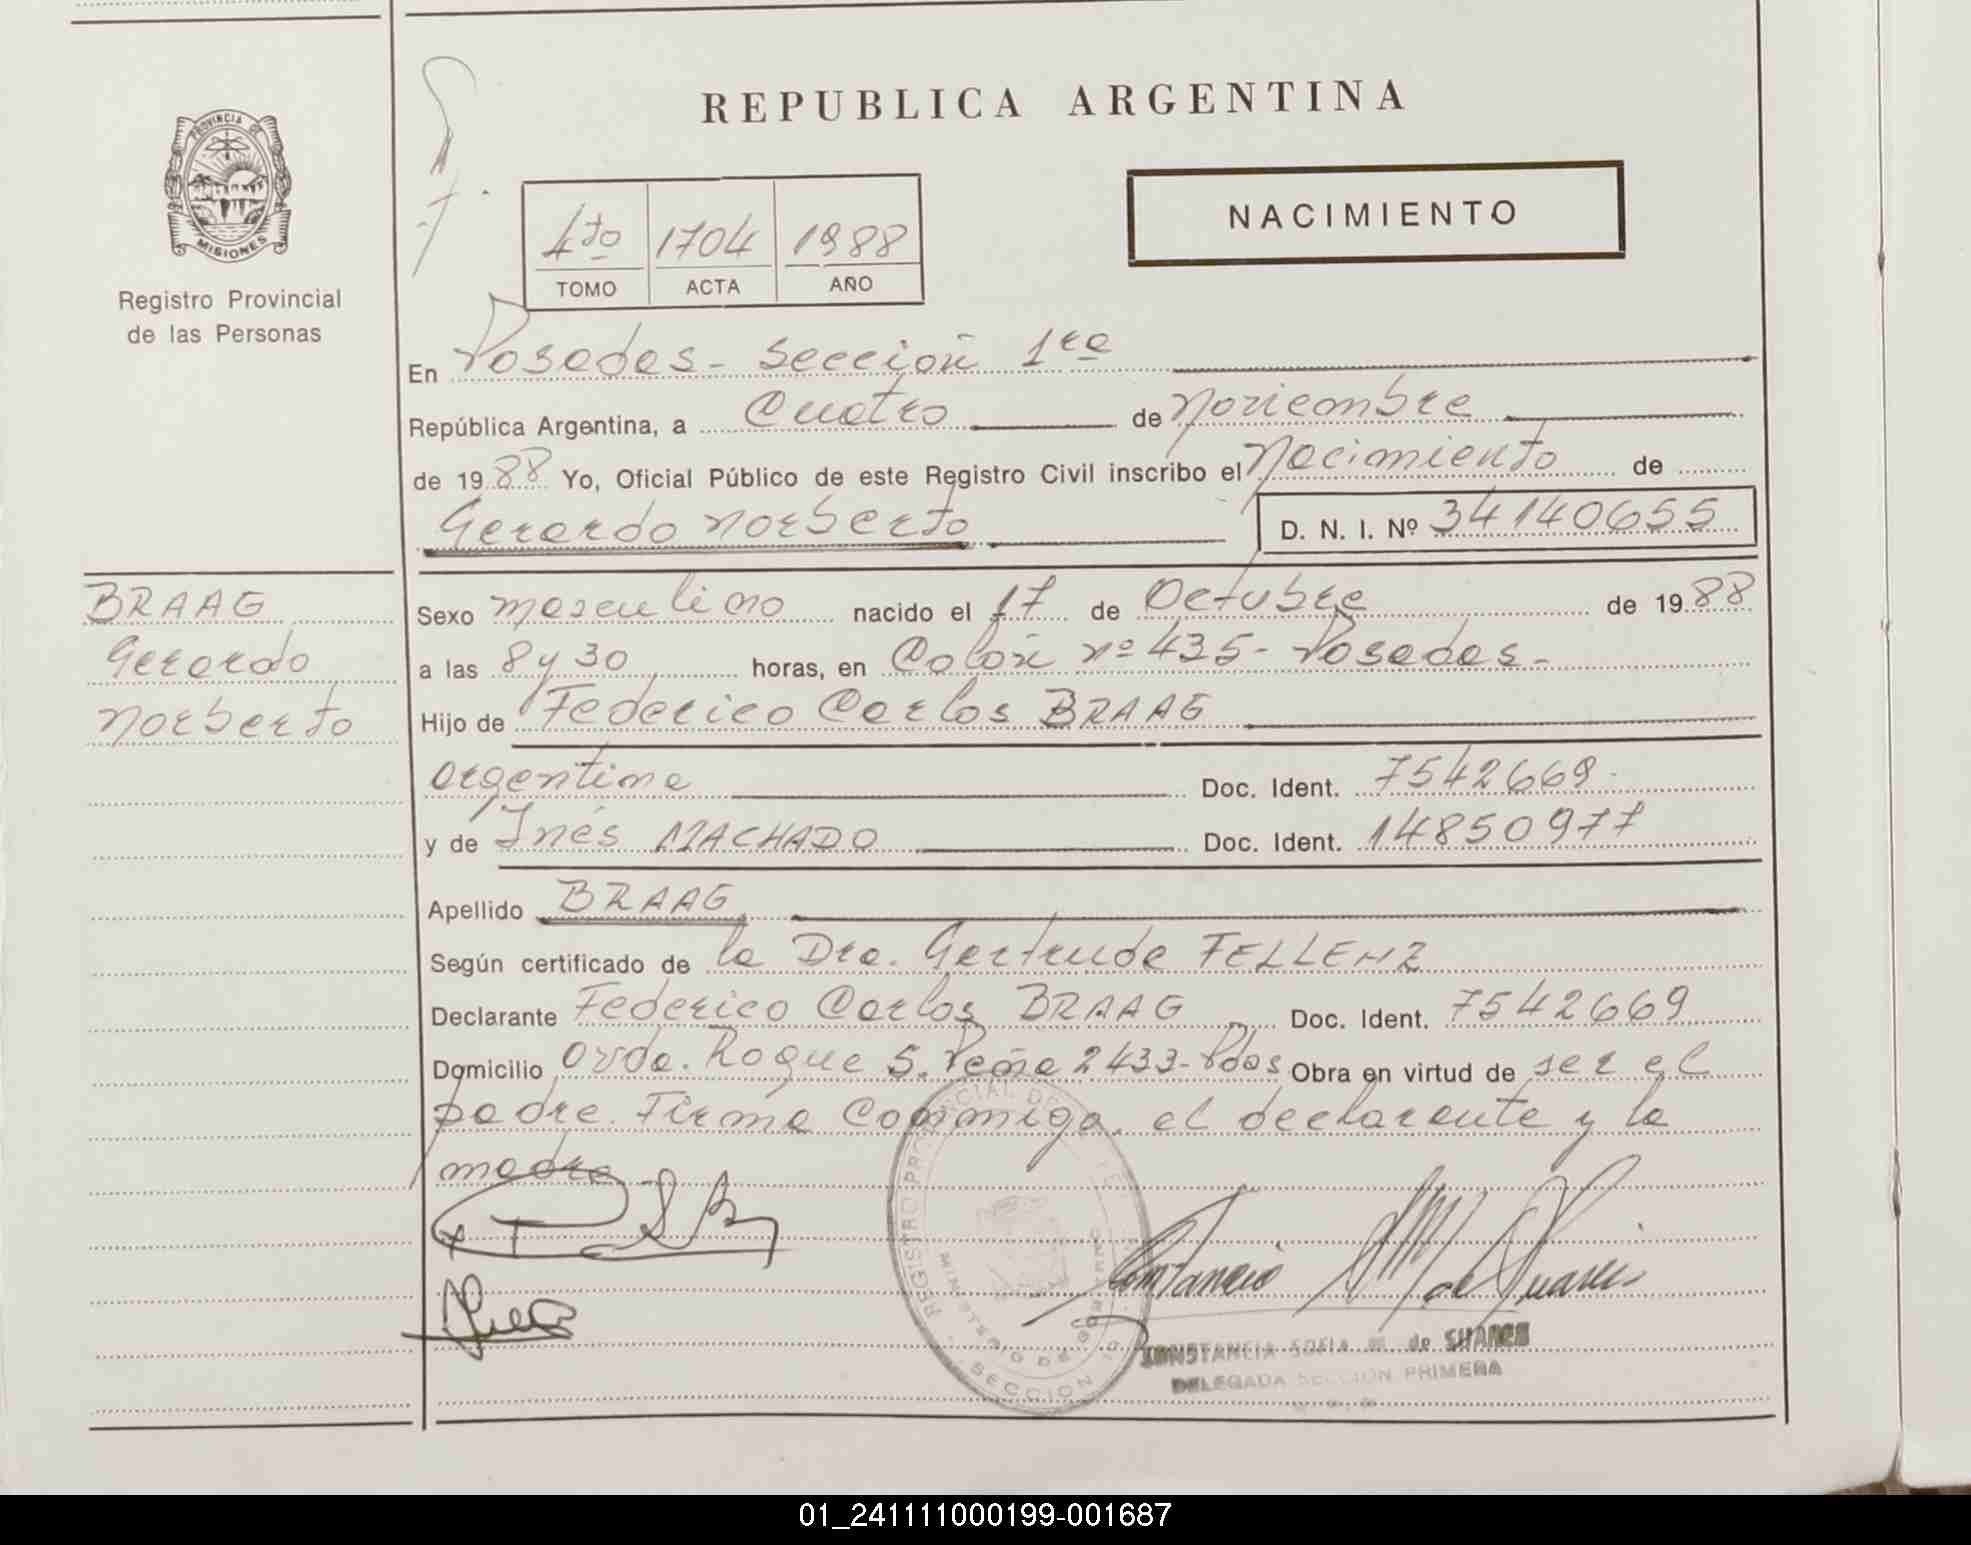 REPUBLICA ARGENTINA
PROVINCIA DE
MISIONES
Registro Provincial
de las Personas
NACIMIENTO
4to 1704 1988
TOMO ACTA AÑO
En Posadas - Sección 1ra
República Argentina, a Cuatro de Noviembre
de 1988 Yo, Oficial Público de este Registro Civil inscribo el Nacimiento de
Gerardo Norberto D. N. I. Nº 34140655
BRAAG
Gerardo
Norberto
Sexo masculino nacido el 17 de Octubre de 1988
a las 8 y 30 horas, en Colón nº 435 - Posadas -
Hijo de Federico Carlos BRAAG
argentina Doc. Ident. 7542669
y de Inés MACHADO Doc. Ident. 14850977
Apellido BRAAG
Según certificado de la Dra. Gertrude FELLENZ
Declarante Federico Carlos BRAAG Doc. Ident. 7542669
Domicilio Avda. Roque S. Peña 2433 - Pdas Obra en virtud de ser el
padre. Firma conmigo, el declarante y la
madre
REGISTRO PROVINCIAL DE
MINISTERIO DE GOBIERNO
SECCION
Constancia de Suarez
CONSTANCIA SOFIA M. de SUAREZ
DELEGADA SECCIÓN PRIMERA
01_241111000199-001687